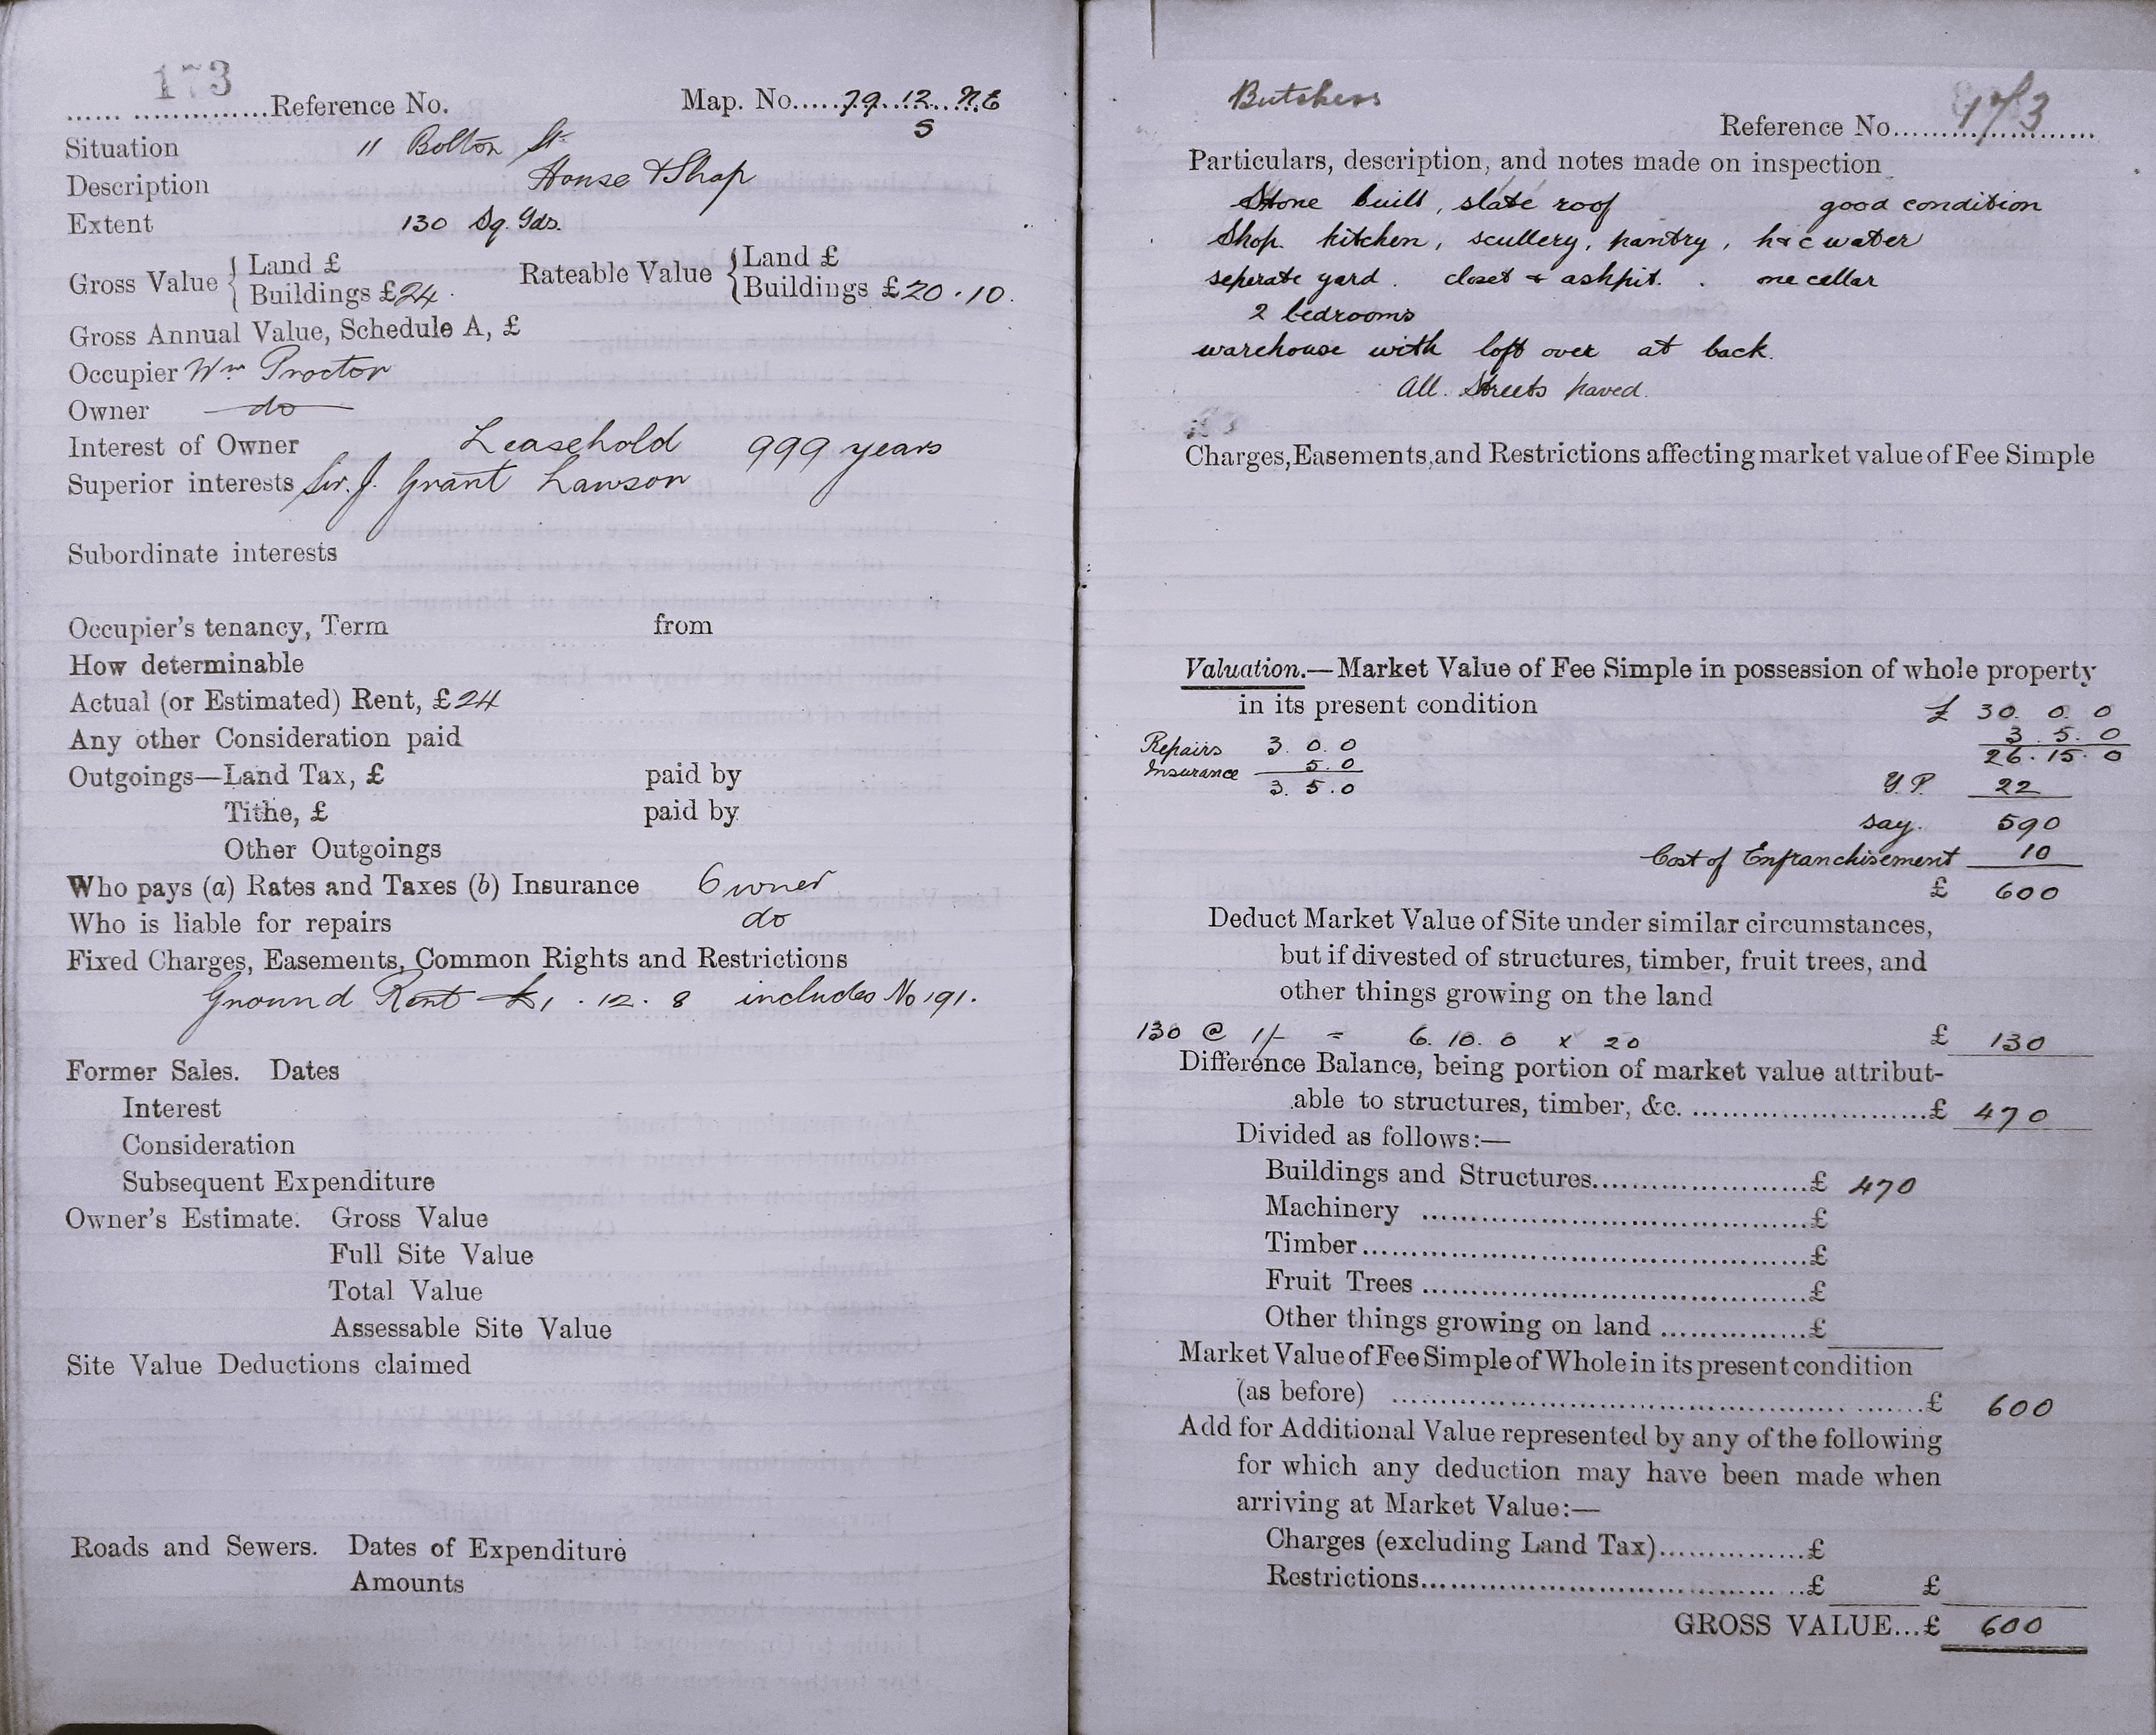 173
Reference No. Map. No. 79. 12. N.E
S
Situation 11 Bolton St
Description House & Shop
Extent 130 Sq. Yds.
Gross Value { Land £
Buildings £24.
Rateable Value { Land £
Buildings £20.10.
Gross Annual Value, Schedule A, £
Occupier Wm Proctor
Owner do
Interest of Owner Leasehold 999 years
Superior interests Sir. J. Grant Lawson
Subordinate interests
Occupier's tenancy, Term from
How determinable
Actual (or Estimated) Rent, £24
Any other Consideration paid
Outgoings—Land Tax, £ paid by
Tithe, £ paid by
Other Outgoings
Who pays (a) Rates and Taxes (b) Insurance Owner
Who is liable for repairs do
Fixed Charges, Easements, Common Rights and Restrictions
Ground Rent £1.12.8 includes No 191.
Former Sales. Dates
Interest
Consideration
Subsequent Expenditure
Owner's Estimate. Gross Value
Full Site Value
Total Value
Assessable Site Value
Site Value Deductions claimed
Roads and Sewers. Dates of Expenditure
Amounts
Butchers
Reference No. 173
Particulars, description, and notes made on inspection
Stone built, slate roof good condition
Shop. kitchen, scullery, pantry, h & c water
seperate yard. closet & ashpit. one cellar
2 bedrooms
warehouse with loft over at back.
All. Streets paved.
Charges, Easements, and Restrictions affecting market value of Fee Simple
Valuation.—Market Value of Fee Simple in possession of whole property
in its present condition £ 30. 0. 0
Repairs 3. 0. 0 3. 5. 0
Insurance 5. 0 26. 15. 0
3. 5. 0 Y.P. 22
say. 590
Cost of Enfranchisement 10
£ 600
Deduct Market Value of Site under similar circumstances,
but if divested of structures, timber, fruit trees, and
other things growing on the land
130 @ 1/- = 6. 10. 0 x 20 £ 130
Difference Balance, being portion of market value attribut-
able to structures, timber, &c. £ 470
Divided as follows:—
Buildings and Structures £ 470
Machinery £
Timber £
Fruit Trees £
Other things growing on land £
Market Value of Fee Simple of Whole in its present condition
(as before) £ 600
Add for Additional Value represented by any of the following
for which any deduction may have been made when
arriving at Market Value:—
Charges (excluding Land Tax) £
Restrictions £ £
GROSS VALUE...£ 600